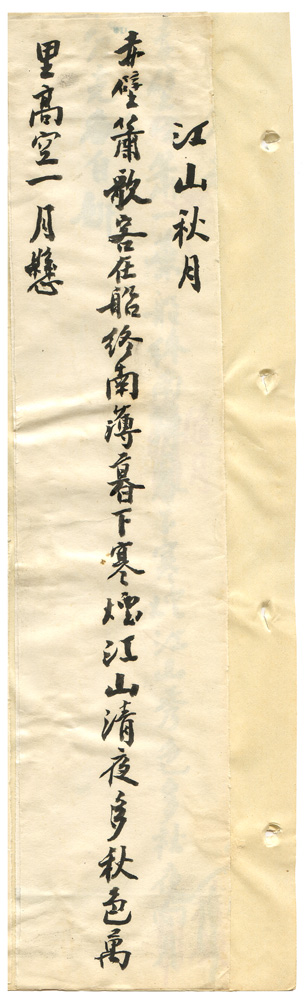 江山秋月
赤壁簫歌客在船終南薄暮下寒煙江山清夜多秋色萬
里高空一月懸